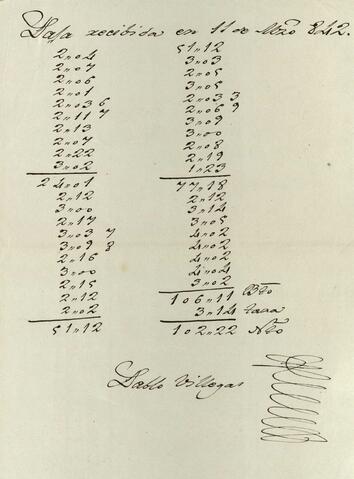 Pasa recibida en 11 de Mzo 842.
2,,04
2,,07
2,,06
2,,01
2,,03 6
2,,11 7
2,,13
2,,07
2,,22
3,,02
24,,01
2,,12
3,,00
2,,17
3,,03 7
3,,09 8
2,,16
3,,00
2,,15
2,,12
2,,02
51,,12
51,,12
3,,03
2,,05
3,,05
2,,03 3
2,,06 9
3,,09
3,,00
2,,08
2,,19
1,,23
77,,18
2,,12
3,,14
3,,05
4,,02
4,,02
4,,02
4,,04
3,,02
106,,11 Bto
3,,14 tara
102,,22 Nto
Pablo Villegas